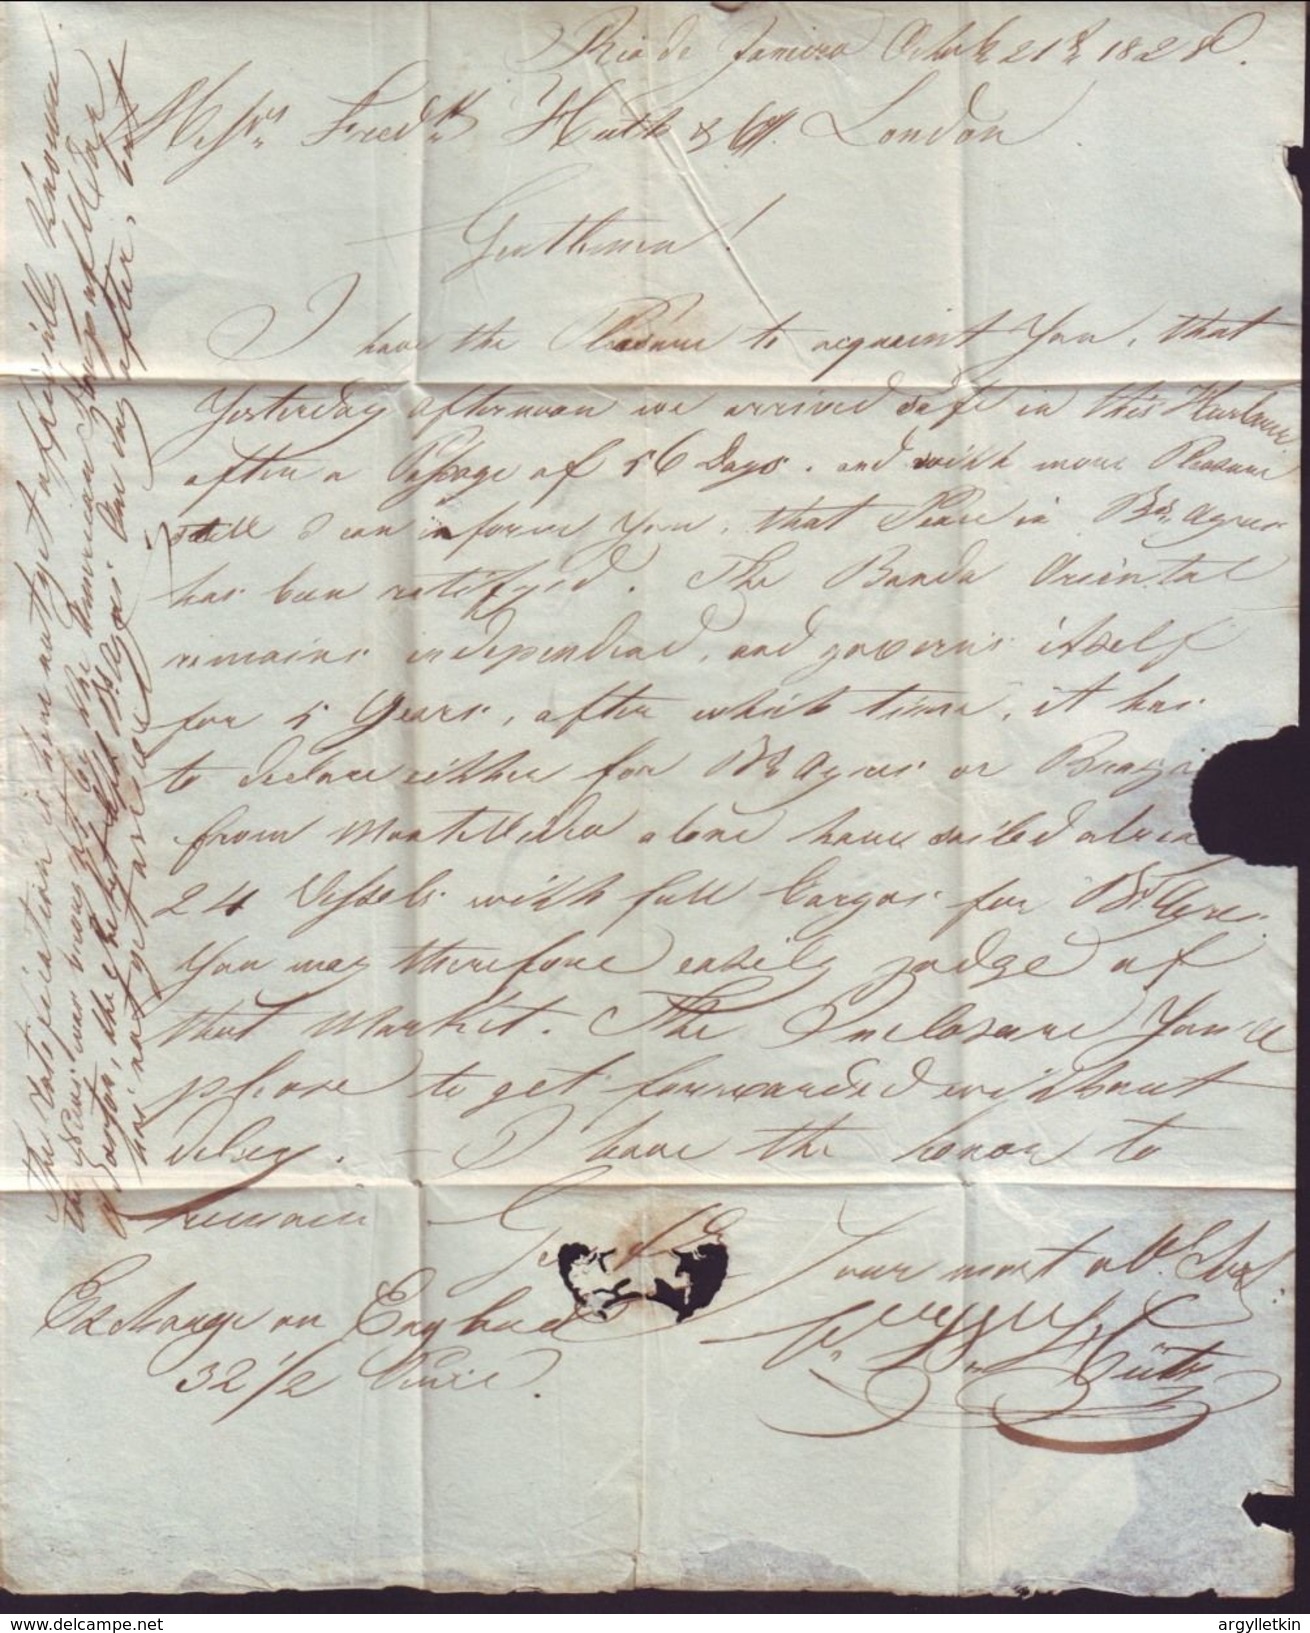 Rio de Janiero October 21st 1828.
Messrs Fredk Huth & Co. London
Gentlemen!
I have the Pleasure to acquaint You, that
Yesterday afternoon we arrived safe in this Harbour
after a Passage of 56 Days. and with more Pleasure
still I can inform You, that Peace in Bs. Ayres
has been ratifyed. The Banda Oriental
remains independend, and governs itself
for 5 Years, after which time, it has
to declare either for Bs Ayres or Brazi
from Montevideo alone have sailed alrea
24 Vessels with full Cargos for Bs Ayres.
You may therefore easily judge of
that Market. The Inclosure You'll
please to get forwarded without
delay. — I have the honor to
remain
Your most obt. Servt
Exchange on England
32 1/2 Pence.
The Ratification is here not yet officially known.
the News was brought by the American Sloop of War
Boston, the packet left Bs. Ayres One day after, but
has not yet arrived
argylletkin